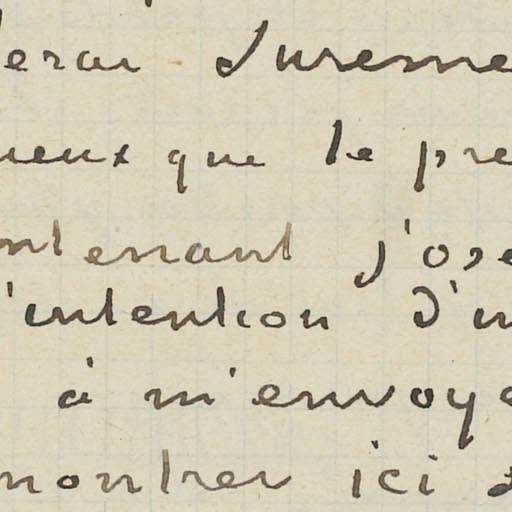 derai sureme
ieux que le pre
ntenant j'ose
l'intention d'in
à m'envoye
montrer ici